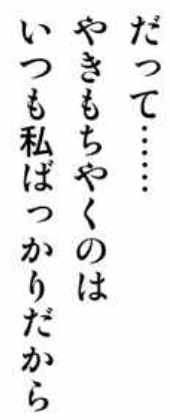 だって……
やきもちやくのは
いつも私ばっかりだから